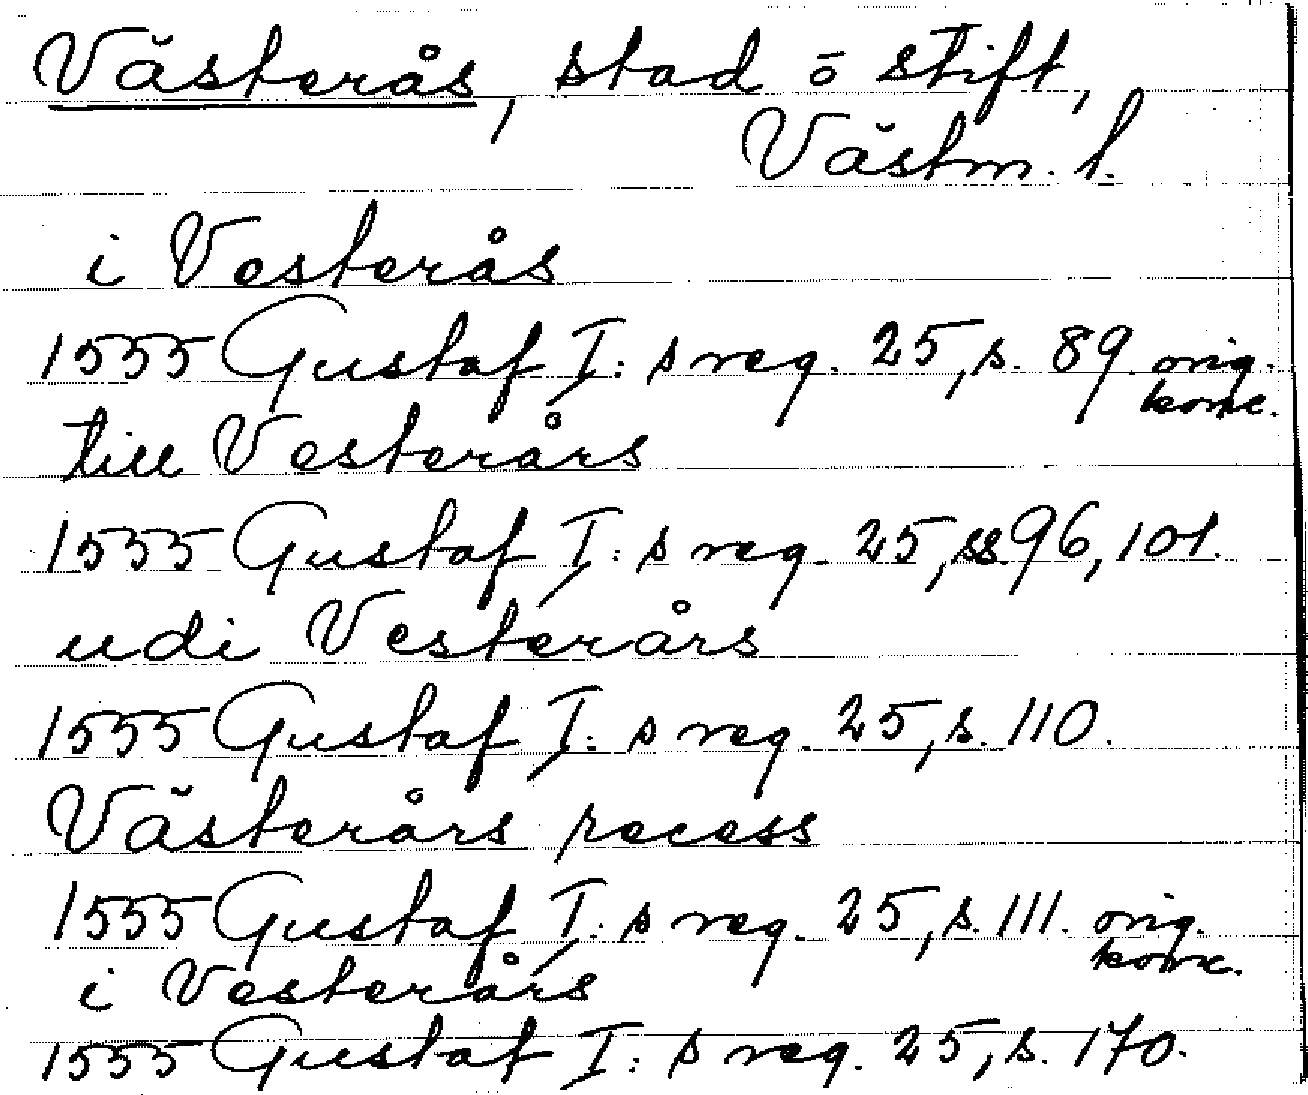 Västerås, stad o stift,
Västm. l.
i Vesterås
1555 Gustaf I: s reg. 25, s. 89 orig. konc.
till Vesterårs
1555 Gustaf I: s reg. 25, ss 96, 101.
udi Vesterårs
1555 Gustaf I: s reg. 25, s. 110.
Västerårs recess
1555 Gustaf I: s reg. 25, s. 111. orig. konc.
i Vesterårs
1555 Gustaf I: s reg. 25, s. 170.